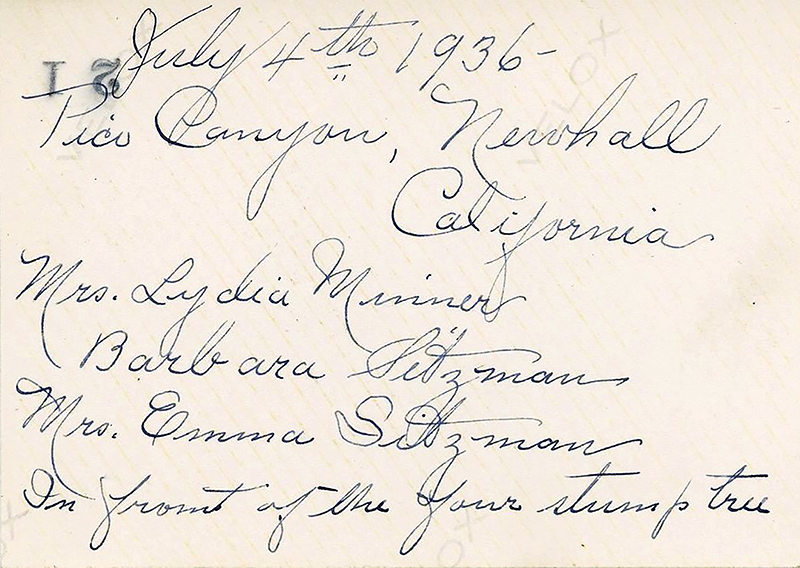 July 4th 1936-
21
Pico Canyon, Newhall
California
Mrs. Lydia Minner
Barbara Sitzman
Mrs. Emma Sitzman
In front of the four stump tree
VELOX